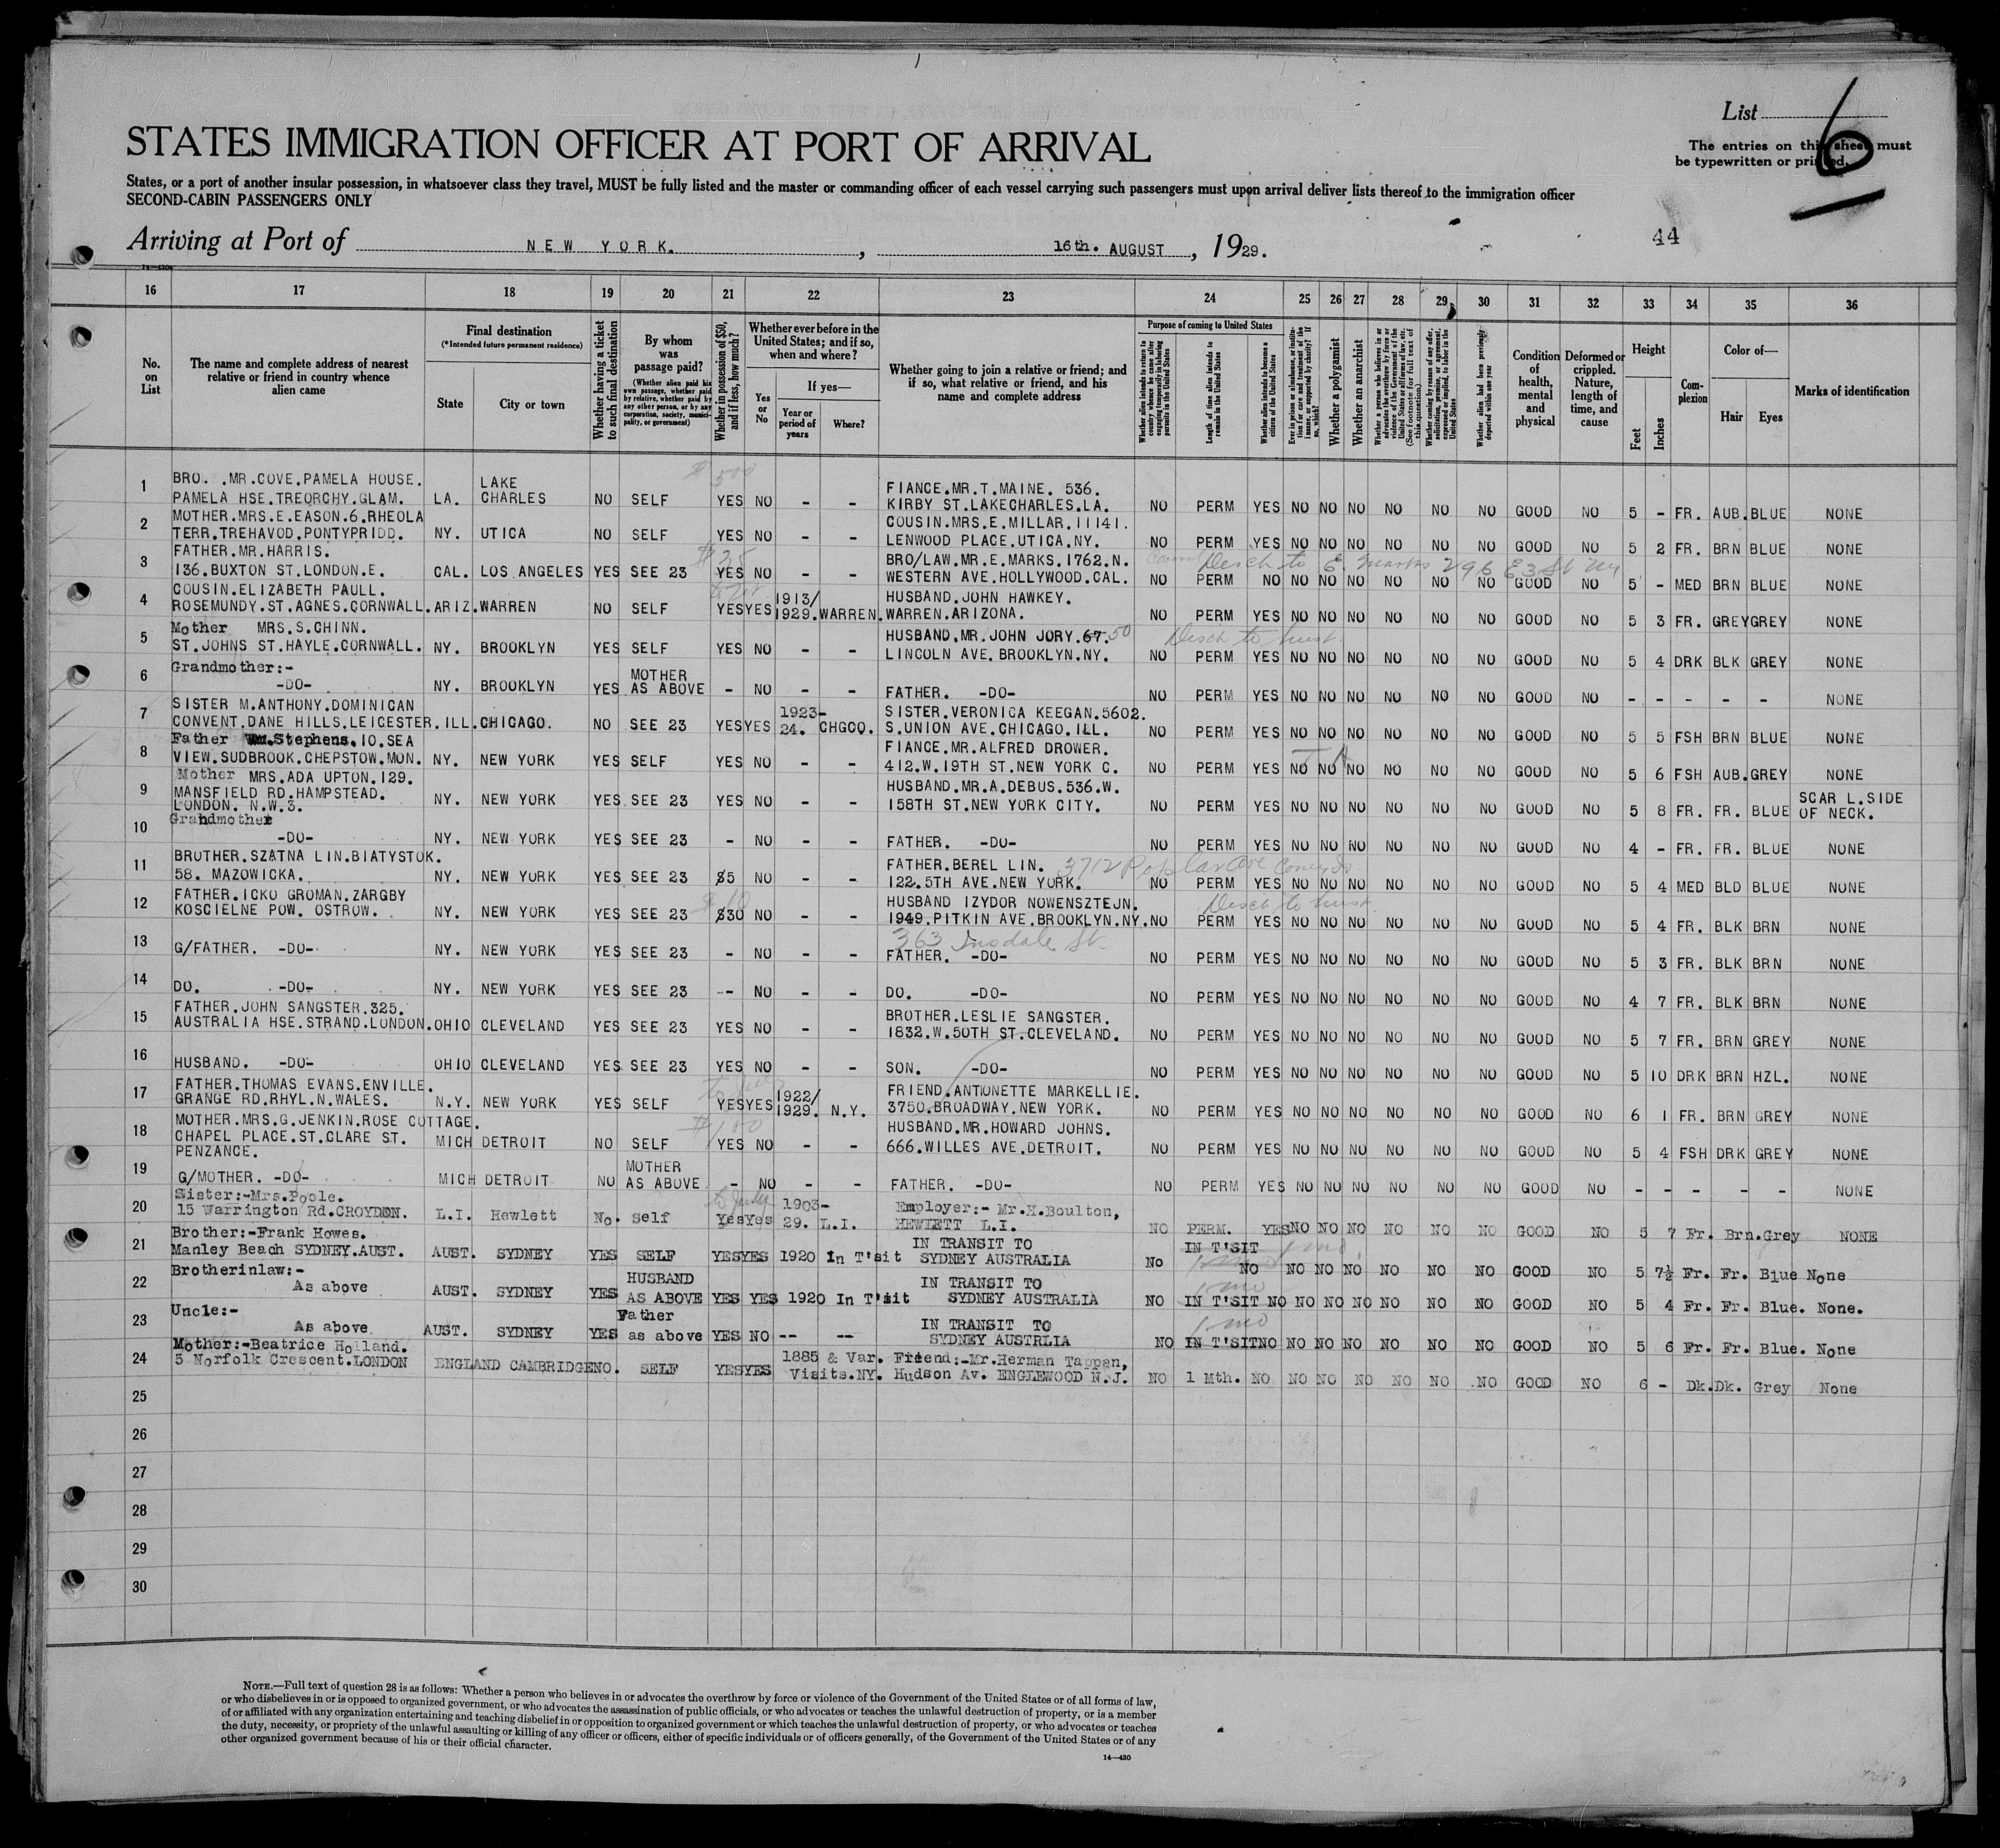 List 6
STATES IMMIGRATION OFFICER AT PORT OF ARRIVAL
The entries on this sheet must
be typewritten or printed.
States, or a port of another insular possession, in whatsoever class they travel, MUST be fully listed and the master or commanding officer of each vessel carrying such passengers must upon arrival deliver lists thereof to the immigration officer
SECOND-CABIN PASSENGERS ONLY
Arriving at Port of NEW YORK. , 16th. AUGUST , 1929.
44
16 17 18 19 20 21 22 23 24 25 26 27 28 29 30 31 32 33 34 35 36
No. on List
The name and complete address of nearest relative or friend in country whence alien came
Final destination
(*Intended future permanent residence)
State
City or town
Whether having a ticket to such final destination
By whom was passage paid?
(Whether alien paid his own passage, whether paid by relative, whether paid by any other person, or by any corporation, society, municipality, or government)
Whether in possession of $50, and if less, how much?
Whether ever before in the United States; and if so, when and where?
Yes or No
If yes—
Year or period of years
Where?
Whether going to join a relative or friend; and if so, what relative or friend, and his name and complete address
Purpose of coming to United States
Whether alien intends to return to country whence he came after engaging temporarily in laboring pursuits in the United States
Length of time alien intends to remain in the United States
Whether alien intends to become a citizen of the United States
Whether a polygamist
Whether an anarchist
Condition of health, mental and physical
Deformed or crippled. Nature, length of time, and cause
Height
Feet
Inches
Complexion
Color of—
Hair
Eyes
Marks of identification
1 MR.COVE.PAMELA HOUSE. PAMELA HSE.TREORCHY.GLAM. LA. LAKE CHARLES NO SELF YES NO - - FIANCE.MR.T.MAINE. 536. KIRBY ST.LAKECHARLES.LA. NO PERM YES NO NO NO NO NO NO GOOD NO 5 - FR. AUB. BLUE NONE
2 MOTHER.MRS.E.EASON.6.RHEOLA TERR.TREHAVOD.PONTYPRIDD. NY. UTICA NO SELF YES NO - - COUSIN.MRS.E.MILLAR.11141. LENWOOD PLACE.UTICA.NY. NO PERM YES NO NO NO NO NO NO GOOD NO 5 2 FR. BRN BLUE NONE
3 FATHER.MR.HARRIS. 136.BUXTON ST.LONDON.E. CAL. LOS ANGELES YES SEE 23 $25 YES NO - - BRO/LAW.MR.E.MARKS.1762.N. WESTERN AVE.HOLLYWOOD.CAL. NO PERM NO NO NO NO NO NO NO GOOD NO 5 - MED BRN BLUE NONE
Disch to E. Marks 296 E 3 St NY
4 COUSIN.ELIZABETH PAULL. ROSEMUNDY.ST.AGNES.CORNWALL. ARIZ. WARREN NO SELF YES YES 1913/1929. WARREN. HUSBAND.JOHN HAWKEY. WARREN.ARIZONA. NO PERM YES NO NO NO NO NO NO GOOD NO 5 3 FR. GREY GREY NONE
5 Mother MRS.S.CHINN. ST.JOHNS ST.HAYLE.CORNWALL. NY. BROOKLYN YES SELF YES NO - - HUSBAND.MR.JOHN JORY.67. 50 LINCOLN AVE.BROOKLYN.NY. Disch to husb. NO PERM YES NO NO NO NO NO NO GOOD NO 5 4 DRK BLK GREY NONE
6 Grandmother:- -DO- NY. BROOKLYN YES MOTHER AS ABOVE - NO - - FATHER. -DO- NO PERM YES NO NO NO NO NO NO GOOD NO - - - - - NONE
7 SISTER M.ANTHONY.DOMINICAN CONVENT.DANE HILLS.LEICESTER. ILL. CHICAGO. NO SEE 23 YES YES 1923-24. CHGCO. SISTER.VERONICA KEEGAN.5602. S.UNION AVE.CHICAGO.ILL. NO PERM YES NO NO NO NO NO NO GOOD NO 5 5 FSH BRN BLUE NONE
8 Father Wm.Stephens.10.SEA VIEW.SUDBROOK.CHEPSTOW.MON. NY. NEW YORK YES SELF YES NO - - FIANCE.MR.ALFRED DROWER. 412.W.19TH ST.NEW YORK C. NO PERM YES NO NO NO NO NO NO GOOD NO 5 6 FSH AUB. GREY NONE
9 Mother MRS.ADA UPTON.129. MANSFIELD RD.HAMPSTEAD. LONDON. N.W.3. NY. NEW YORK YES SEE 23 YES NO - - HUSBAND.MR.A.DEBUS.536.W. 158TH ST.NEW YORK CITY. NO PERM YES NO NO NO NO NO NO GOOD NO 5 8 FR. FR. BLUE SCAR L.SIDE OF NECK.
10 Grandmother -DO- NY. NEW YORK YES SEE 23 - NO - - FATHER. -DO- NO PERM YES NO NO NO NO NO NO GOOD NO 4 - FR. FR. BLUE NONE
11 BROTHER.SZATNA LIN.BIATYSTOK. 58. MAZOWICKA. NY. NEW YORK YES SEE 23 $5 NO - - FATHER.BEREL LIN. 3712 Poplar Ave Coney Is 122.5TH AVE.NEW YORK. NO PERM YES NO NO NO NO NO NO GOOD NO 5 4 MED BLD BLUE NONE
12 FATHER.ICKO GROMAN.ZARGBY KOSCIELNE POW. OSTROW. NY. NEW YORK YES SEE 23 $30 NO - - HUSBAND IZYDOR NOWENSZTEJN. 1949.PITKIN AVE.BROOKLYN.NY. Disch to husb. NO PERM YES NO NO NO NO NO NO GOOD NO 5 4 FR. BLK BRN NONE
13 G/FATHER. -DO- NY. NEW YORK YES SEE 23 - NO - - 363 St. FATHER. -DO- NO PERM YES NO NO NO NO NO NO GOOD NO 5 3 FR. BLK BRN NONE
14 DO. -DO- NY. NEW YORK YES SEE 23 -- NO - - DO. -DO- NO PERM YES NO NO NO NO NO NO GOOD NO 4 7 FR. BLK BRN NONE
15 FATHER.JOHN SANGSTER.325. AUSTRALIA HSE.STRAND.LONDON. OHIO CLEVELAND YES SEE 23 YES NO - - BROTHER.LESLIE SANGSTER. 1832.W.50TH ST.CLEVELAND. NO PERM YES NO NO NO NO NO NO GOOD NO 5 7 FR. BRN GREY NONE
16 HUSBAND. -DO- OHIO CLEVELAND YES SEE 23 YES NO - - SON. -DO- NO PERM YES NO NO NO NO NO NO GOOD NO 5 10 DRK BRN HZL. NONE
17 FATHER.THOMAS EVANS.ENVILLE. GRANGE RD.RHYL.N.WALES. N.Y. NEW YORK YES SELF YES YES 1922/1929. N.Y. FRIEND.ANTIONETTE MARKELLIE. 3750.BROADWAY.NEW YORK. NO PERM YES NO NO NO NO NO NO GOOD NO 6 1 FR. BRN GREY NONE
18 MOTHER.MRS.G.JENKIN.ROSE COTTAGE. CHAPEL PLACE.ST.CLARE ST. PENZANCE. MICH DETROIT NO SELF $100 YES NO - - HUSBAND.MR.HOWARD JOHNS. 666.WILLES AVE.DETROIT. NO PERM YES NO NO NO NO NO NO GOOD NO 5 4 FSH DRK GREY NONE
19 G/MOTHER. -DO- MICH DETROIT NO MOTHER AS ABOVE. - NO - - FATHER. -DO- NO PERM YES NO NO NO NO NO NO GOOD NO - - - - - NONE
20 Sister:-Mrs.Poole. 15 Warrington Rd.CROYDON. L.I. Hewlett No. Self Yes Yes 1903-29. L.I. Employer:- Mr.H.Boulton, HEWLETT L.I. NO PERM. YES NO NO NO NO NO NO GOOD NO 5 7 Fr. Brn. Grey NONE
21 Brother:-Frank Howes. Manley Beach SYDNEY.AUST. AUST. SYDNEY YES SELF YES YES 1920 In T'sit IN TRANSIT TO SYDNEY AUSTRALIA No IN T'SIT 1 mo NO NO NO NO NO NO NO GOOD NO 5 7½ Fr. Fr. Blue None
22 Brotherinlaw:- As above AUST. SYDNEY YES HUSBAND AS ABOVE YES YES 1920 In T'sit IN TRANSIT TO SYDNEY AUSTRALIA NO 1 mo IN T'SIT NO NO NO NO NO NO NO GOOD NO 5 4 Fr. Fr. Blue. None.
23 Uncle:- As above AUST. SYDNEY YES Father as above YES NO -- -- IN TRANSIT TO SYDNEY AUSTRLIA NO 1 mo IN T'SIT NO NO NO NO NO NO NO GOOD NO 5 6 Fr. Fr. Blue. None
24 Mother:-Beatrice Holland. 5 Norfolk Crescent.LONDON ENGLAND CAMBRIDGE NO. SELF YES YES 1885 & Var. Visits.NY. Friend:-Mr.Herman Tappen, Hudson Av. ENGLEWOOD N.J. NO 1 Mth. NO NO NO NO NO NO NO GOOD NO 6 - Dk. Dk. Grey None
25
26
27
28
29
30
NOTE.—Full text of question 28 is as follows: Whether a person who believes in or advocates the overthrow by force or violence of the Government of the United States or of all forms of law,
or who disbelieves in or is opposed to organized government, or who advocates the assassination of public officials, or who advocates or teaches the unlawful destruction of property, or is a member
of or affiliated with any organization entertaining and teaching disbelief in or opposition to organized government or which teaches the unlawful destruction of property, or who advocates or teaches
the duty, necessity, or propriety of the unlawful assaulting or killing of any officer or officers, either of specific individuals or of officers generally, of the Government of the United States or of any
other organized government because of his or their official character.
14—430